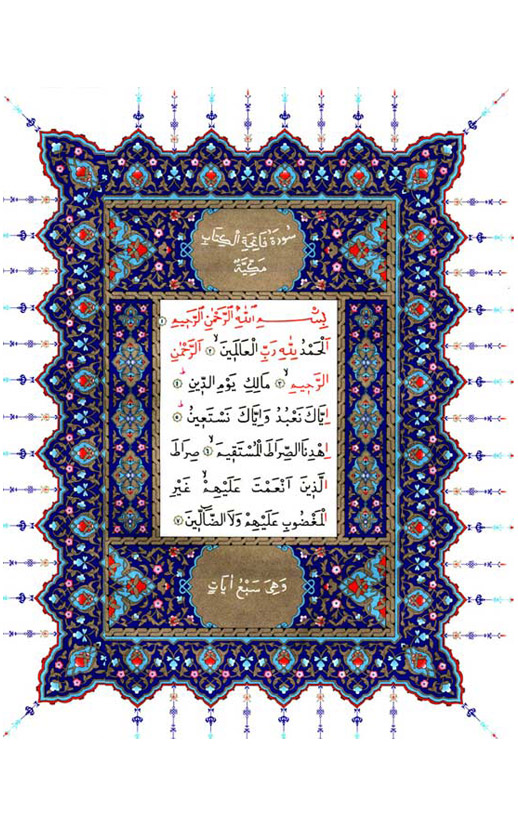 سُورَةُ فَاتِحَةِ الْكِتَابِ
مَكِّيَّةٌ
بِسْمِ اللّٰهِ الرَّحْمٰنِ الرَّحِيمِ ١
اَلْحَمْدُ لِلّٰهِ رَبِّ الْعَالَمِينَۙ ٢ اَلرَّحْمٰنِ
الرَّحِيمِۙ ٣ مَالِكِ يَوْمِ الدِّينِۜ ٤
اِيَّاكَ نَعْبُدُ وَاِيَّاكَ نَسْتَعِينُۜ ٥
اِهْدِنَا الصِّرَاطَ الْمُسْتَقِيمَۙ ٦ صِرَاطَ
الَّذِينَ اَنْعَمْتَ عَلَيْهِمْۙ غَيْرِ
الْمَغْضُوبِ عَلَيْهِمْ وَلَا الضَّٓالِّينَ ٧
وَهِيَ سَبْعُ اٰيَاتٍ